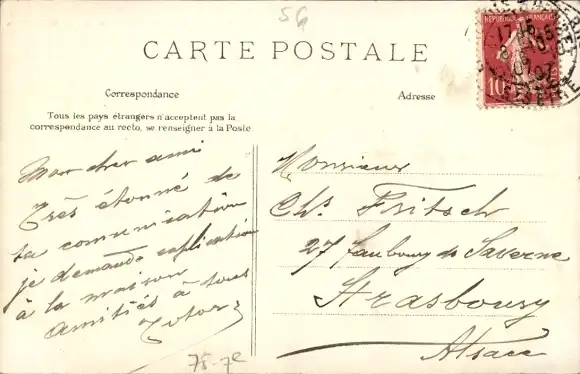 56
CARTE POSTALE
RÉPUBLIQUE FRANÇAISE
10
Correspondance
Adresse
Tous les pays étrangers n'acceptent pas la
correspondance au recto, se renseigner à la Poste
Mon cher ami
Très étonné de
ta communication
je demande explication
à la maison
Amitiés à tous
Totor
Monsieur
Chs. Fritsch
27 faubourg de Saverne
Strasbourg
Alsace
75-7e